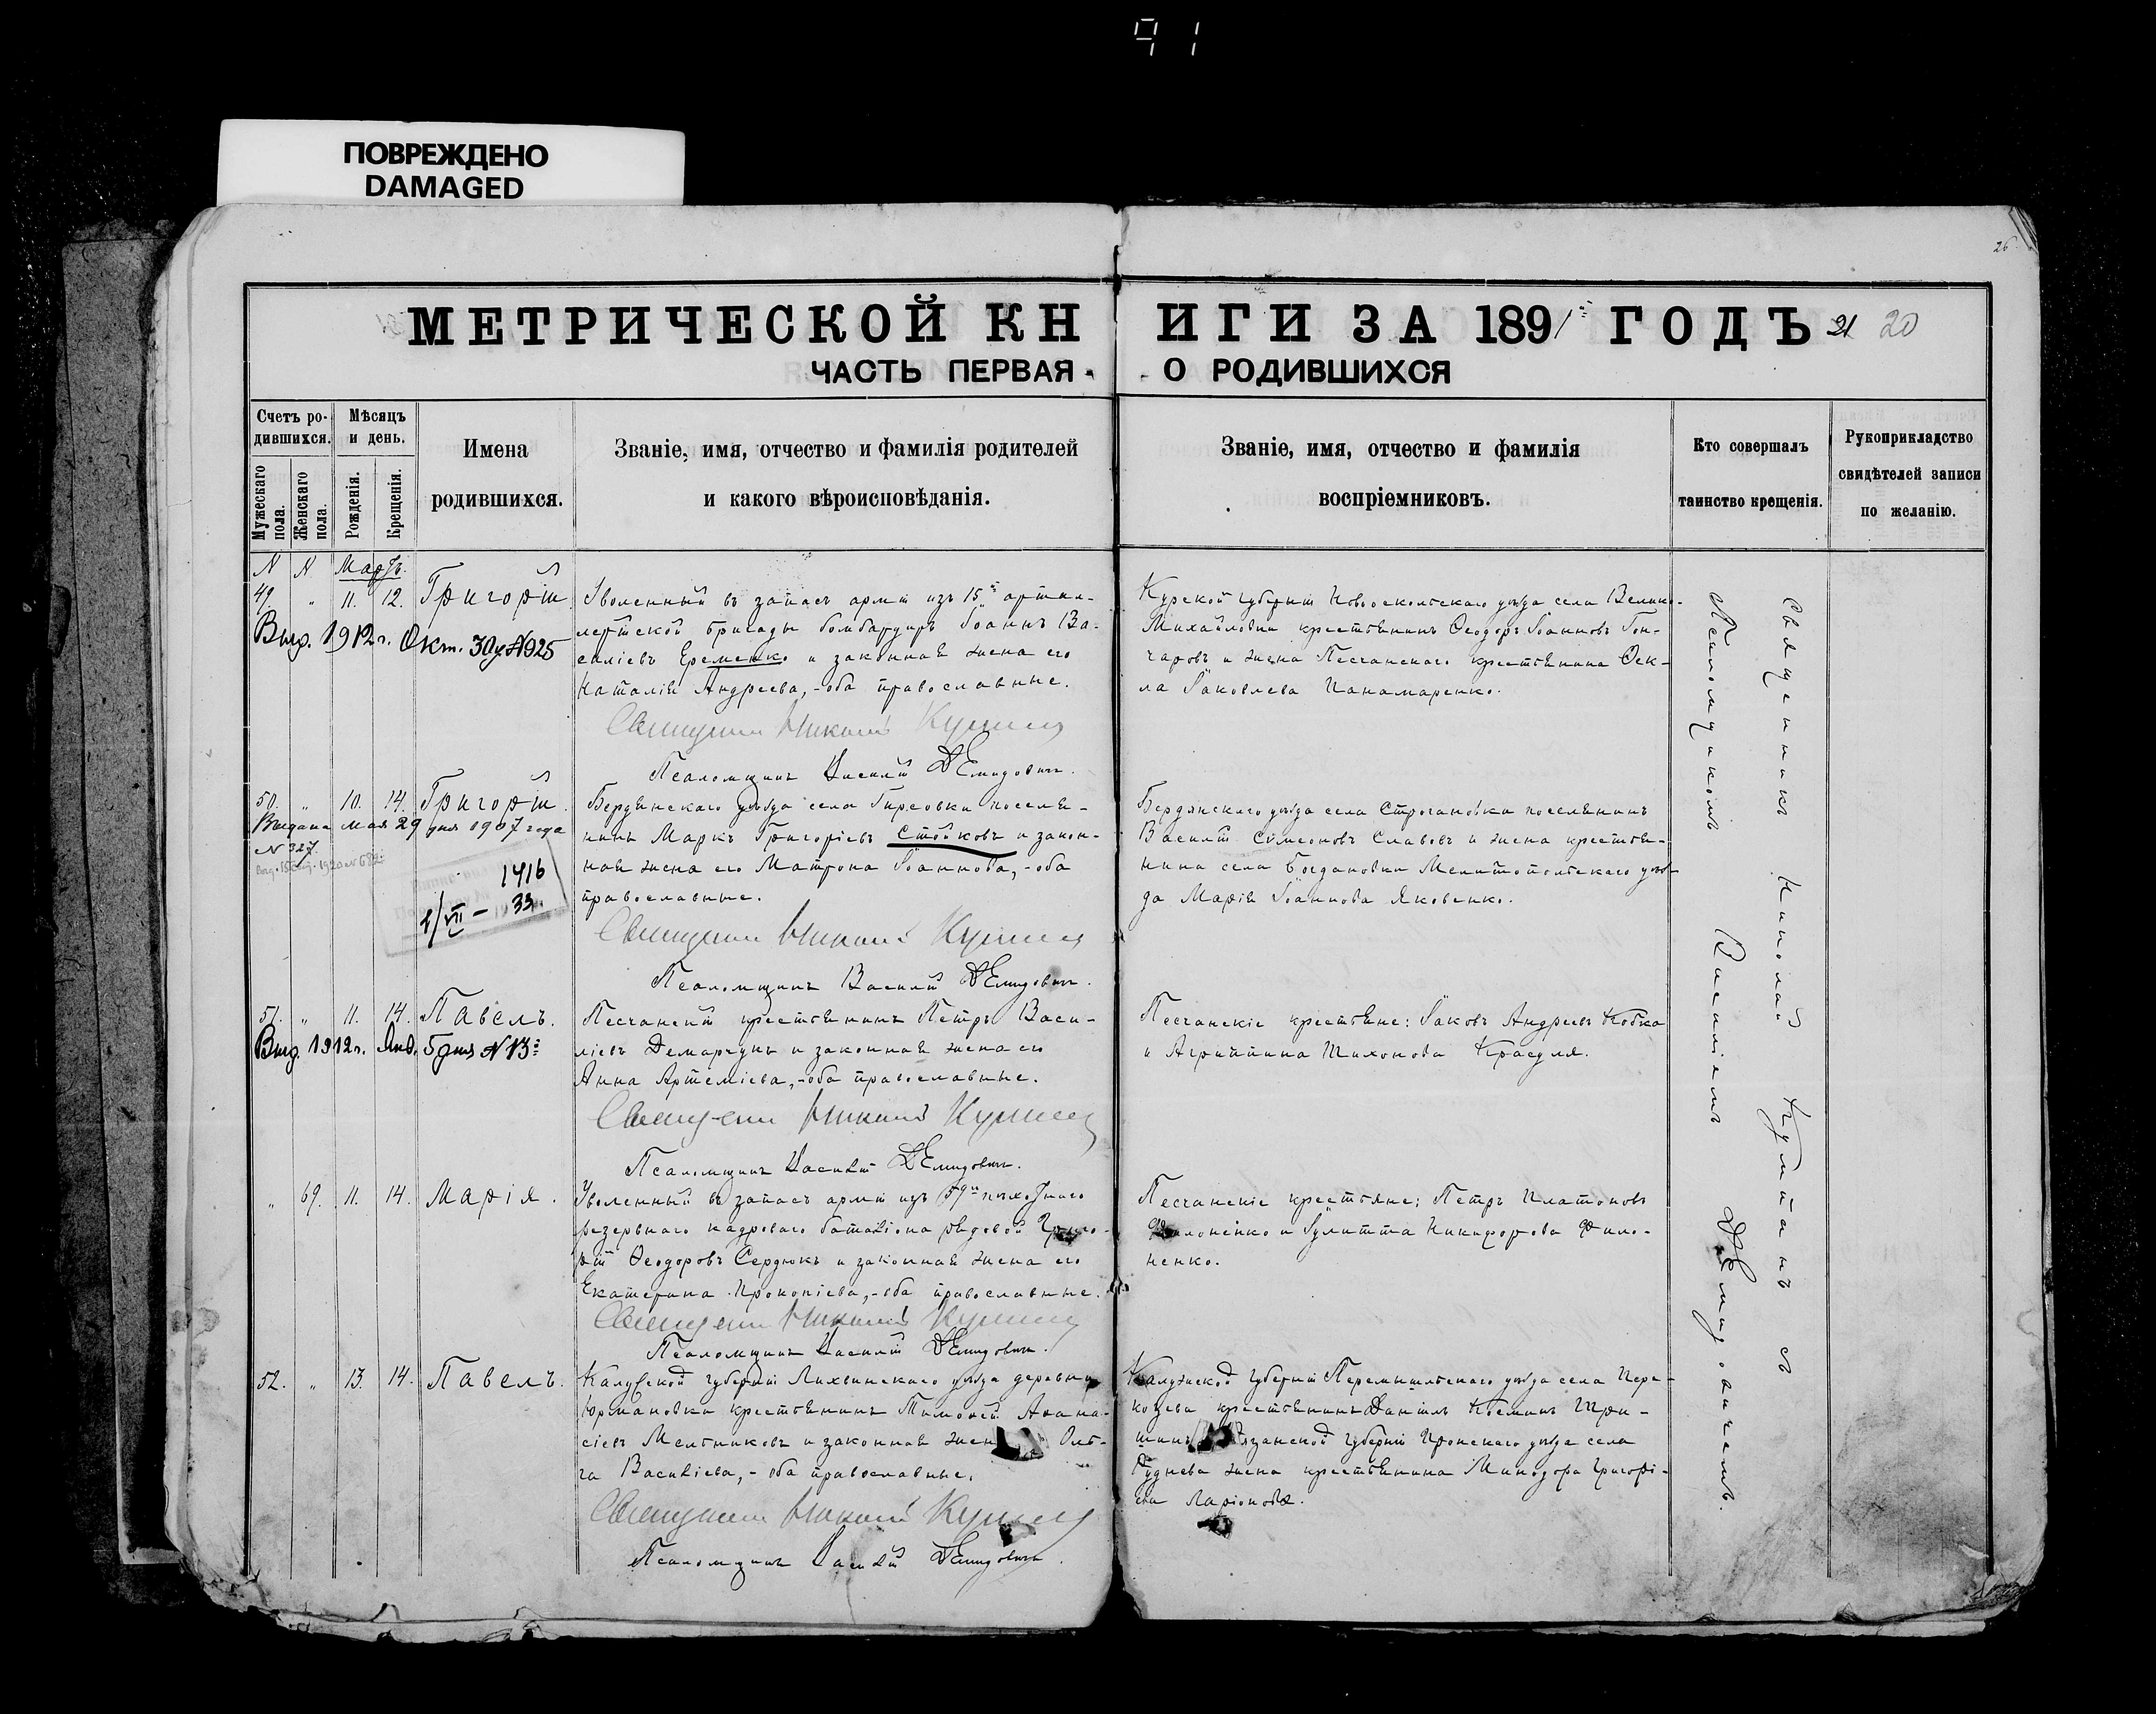 91
ПОВРЕЖДЕНО
DAMAGED
26
МЕТРИЧЕСКОЙ КНИГИ ЗА 1891 ГОДЪ 21 20
ЧАСТЬ ПЕРВАЯ О РОДИВШИХСЯ
Счетъ родившихся.
Мужескаго пола.
Женскаго пола.
Мѣсяцъ и день.
Рожденія.
Крещенія.
Имена
родившихся.
Званіе, имя, отчество и фамилія родителей
и какого вѣроисповѣданія.
Званіе, имя, отчество и фамилія
воспріемниковъ.
Кто совершалъ
таинство крещенія.
Рукоприкладство
свидѣтелей записи
по желанію.
N N Мартъ.
49. " 11. 12. Григорій
Выд. 1912 г. Окт. 30 д. N 925
Уволенный въ запасъ арміи изъ 15й артил-
лерійской бригады бомбардиръ Іоаннъ Ва-
силіевъ Еременко и законная жена его
Наталія Андреева,-оба православные.
Священникъ Николай
Псаломщикъ Василій Демидовичъ.
Курской губерніи Новооскольскаго уѣзда села Велико-
Михайловки крестьянинъ Ѳеодоръ Іоанновъ Гон-
чаровъ и жена Песчанскаго крестьянина Ѳек-
ла Іаковлева Панамаренко.
50. " 10. 14. Григорій.
Выдана мая 29 дня 1907 года
N 327.
1416
1/VII - 33.
Бердянскаго уѣзда села Гирсовки поселя-
нинъ Маркъ Григоріевъ Стойковъ и закон-
ная жена его Матрона Іоаннова,-оба
православные.
Священникъ Николай
Псаломщикъ Василій Демидовичъ.
Бердянскаго уѣзда села Строгановки поселянинъ
Василій Симеоновъ Славовъ и жена крестья-
нина села Богдановки Мелитопольскаго уѣз-
да Марія Іоаннова Яковенко.
51. " 11. 14. Павелъ.
Выд. 1912 г. Янв. 5 дня N 13
Песчанскій крестьянинъ Петръ Васи-
ліевъ и законная жена его
Анна Артеміева,-оба православные.
Священникъ Николай
Псаломщикъ Василій Демидовичъ.
Песчанскіе крестьяне: Іаковъ Андреевъ Кобка
и Агриппина Тихонова
" 69. 11. 14. Марія.
Уволенный въ запасъ арміи изъ 59го пѣхотнаго
резервнаго кадроваго баталіона рядовой Григо-
рій Ѳеодоровъ Сердюкъ и законная жена его
Екатерина Прокопіева,-оба православные.
Священникъ Николай
Псаломщикъ Василій Демидовичъ.
Песчанскіе крестьяне: Петръ Платоновъ
и Іулитта Никифорова Фило-
ненко.
52. " 13. 14. Павелъ.
Калужской губерніи Лихвинскаго уѣзда деревни
Юрмановки крестьянинъ Тимоѳей Аѳана-
сіевъ Мельниковъ и законная жена Оль-
га Василіева,-оба православные.
Священникъ Николай
Псаломщикъ Василій Демидовичъ.
Калужской губерніи Перемышльскаго уѣзда села Пере-
крестьянинъ Даніилъ Косминъ Гри-
шинъ Рязанской губерніи Пронскаго уѣзда села
Руднева жена крестьянина Минодора Григорі-
ева Ларіонова.
Священникъ Николай съ
Псаломщикомъ Василіемъ Демидовичемъ.